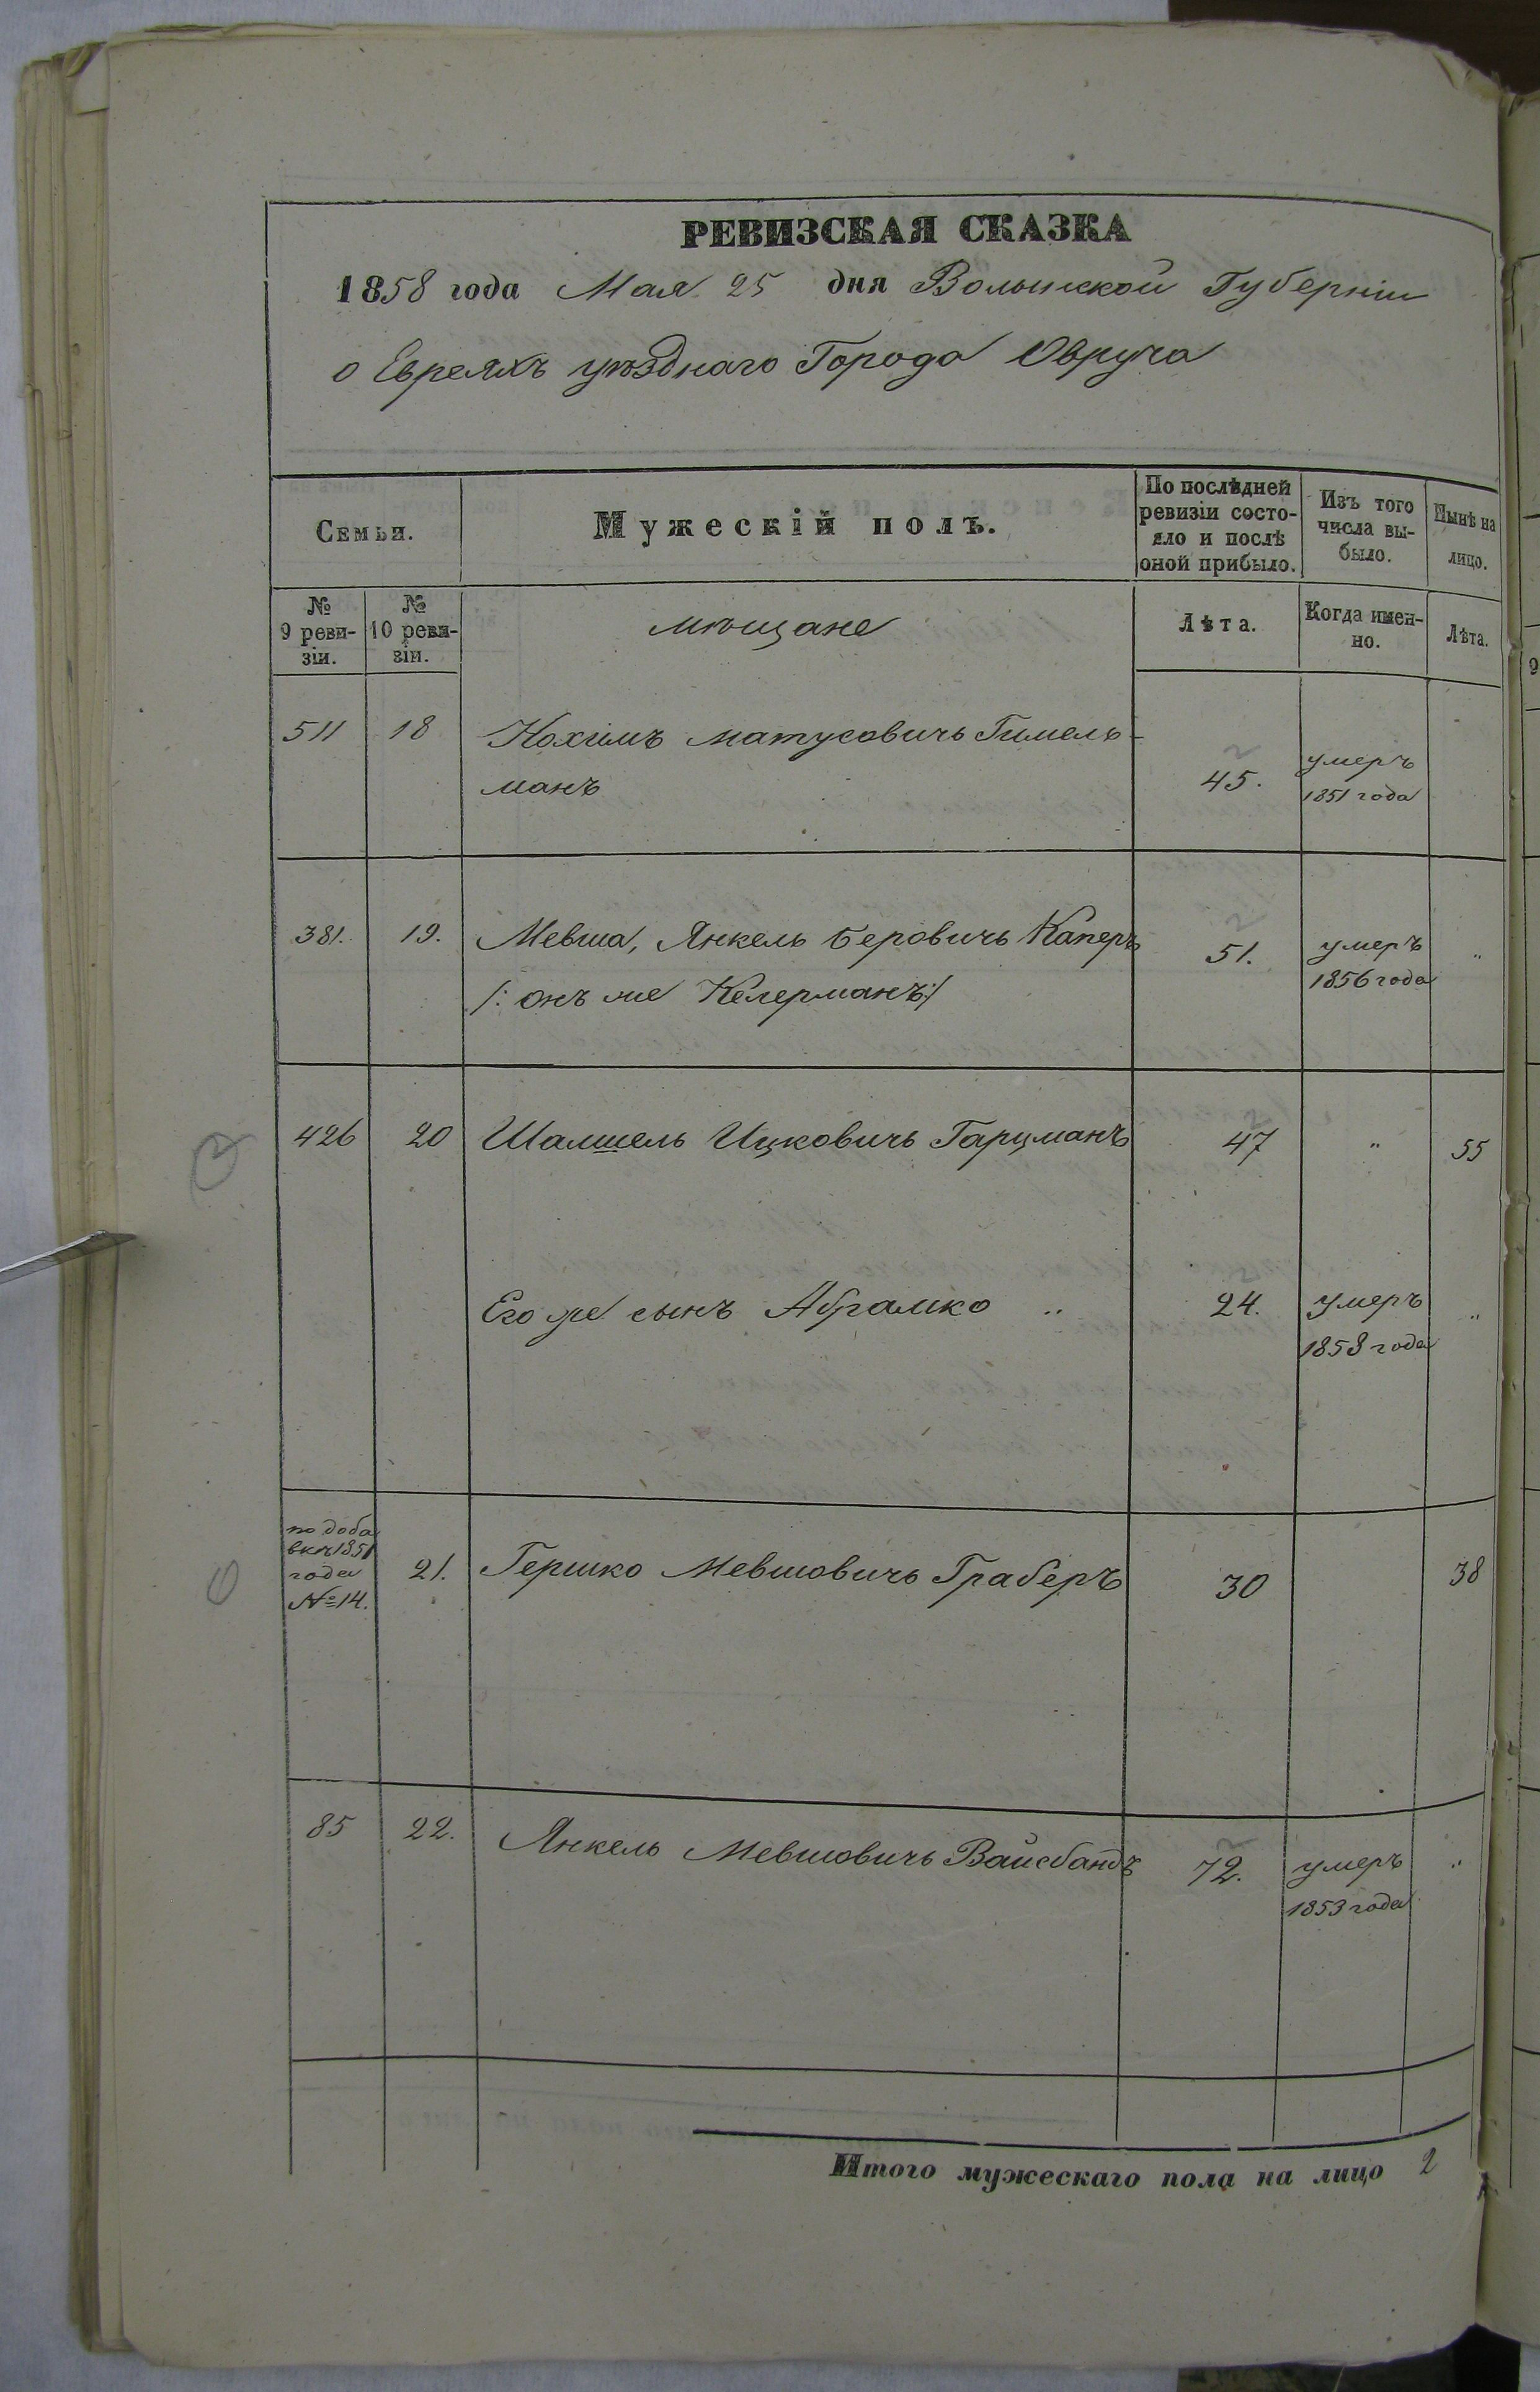 РЕВИЗСКАЯ СКАЗКА
1858 года Мая 25 дня Волынской Губерніи
о Евреяхъ уѣзднаго Города Овруча
Семьи.
Мужескій полъ.
По послѣдней ревизіи состояло и послѣ оной прибыло.
Изъ того числа выбыло.
Нынѣ на лицо.
№ 9 ревизіи.
№ 10 ревизіи.
мѣщане
Лѣта.
Когда именно.
Лѣта.
511 18 Нохимъ Матусовичь Гимель-
манъ 45. умеръ
1851 года
381. 19. Мевша, Янкель Беровичь Каперъ 51. умеръ "
/: онъ же Келерманъ :/ 1856 года
426 20 Шалшель Ицковичь Гарцманъ 47 " 55
Его же сынъ Абрамко " 24. умеръ "
1858 года
по доба
вкѣ 1851
года 21. Гершко Мевшовичь Граберъ 30 38
№ 14.
85 22. Янкель Мевшовичь Вайсбандъ 72. умеръ "
1853 года
Итого мужескаго пола на лицо 2